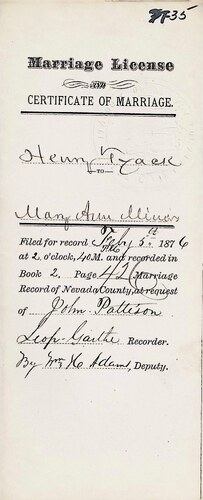 35
Marriage License
AND
CERTIFICATE OF MARRIAGE.
Henry Tyack
TO
Mary Ann Miners
Filed for record Feby 5th 1876
at 2 o'clock, 40 M. and recorded in
Book 2. Page 42 Marriage
Record of Nevada County, at request
of John Patteson
Leop. Garthe Recorder.
By Wm H Adams, Deputy.